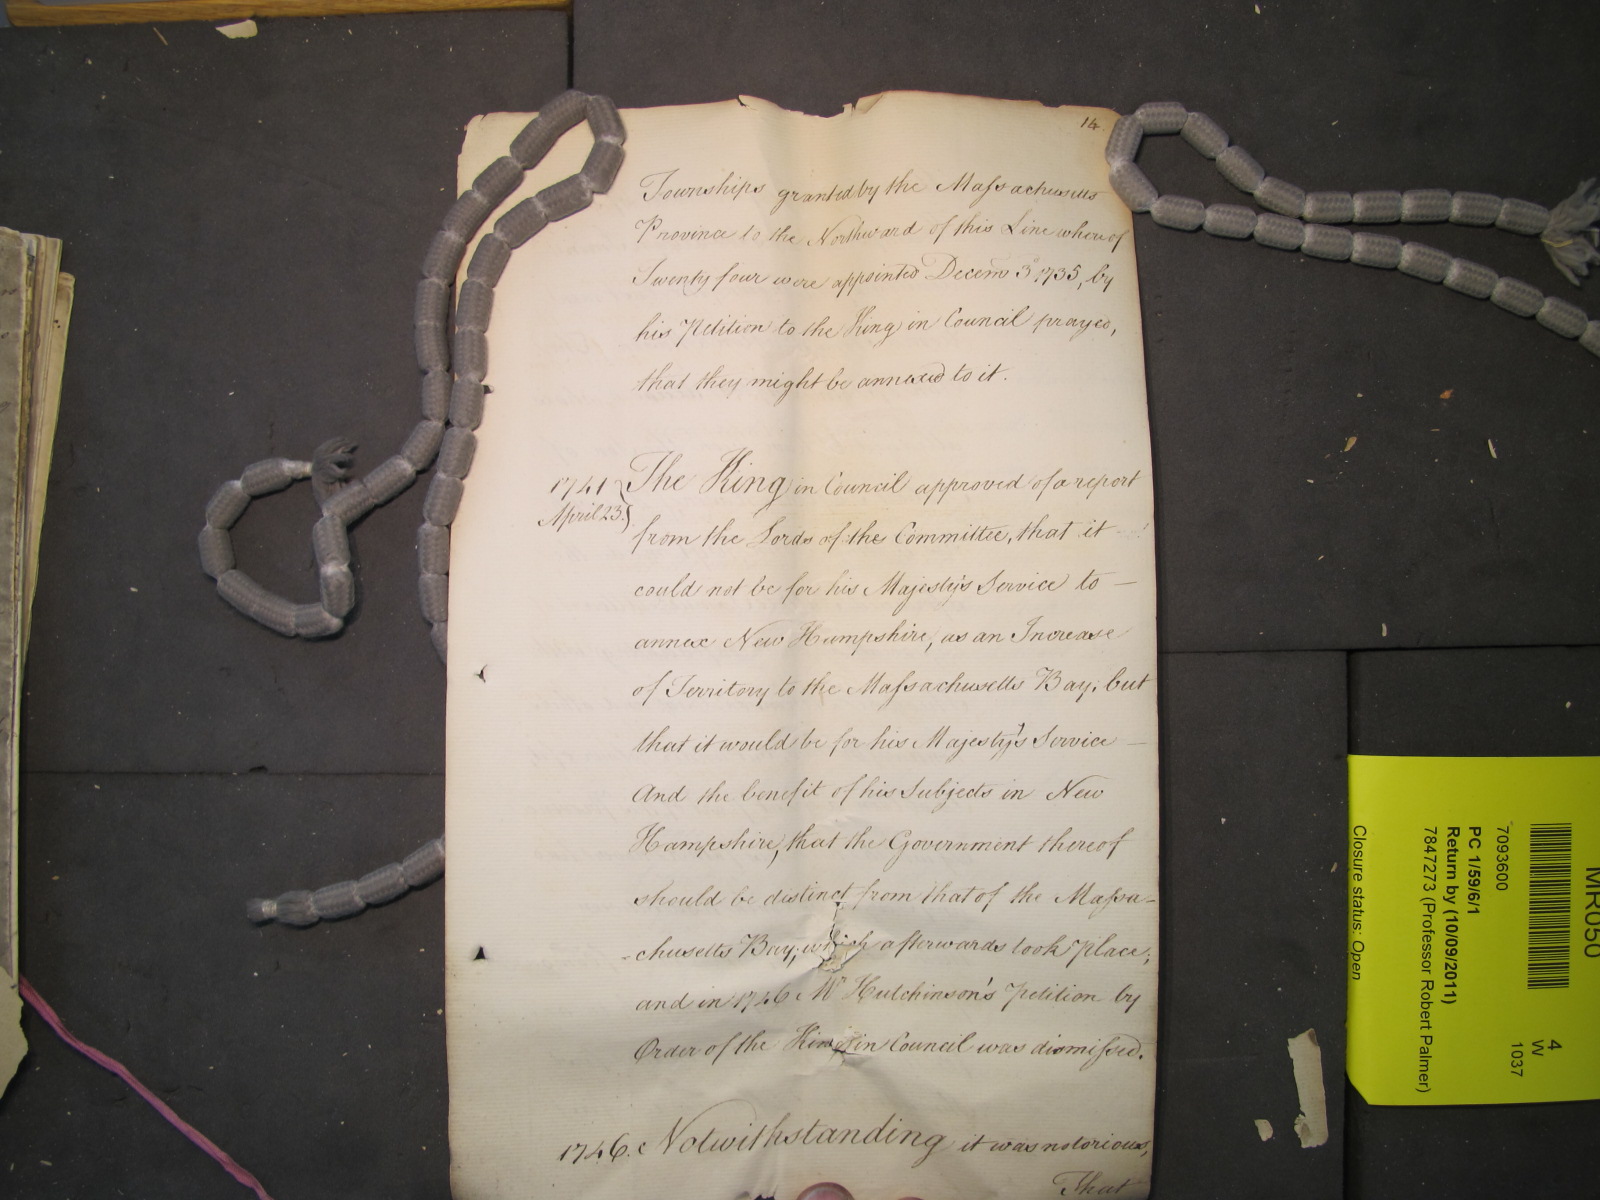 14
Townships granted by the Massachusetts
Province to the Northward of this Line whereof
Twenty four were appointed Decem 3d 1735, by
his Petition to the King in Council prayed,
that they might be annexed to it.
1741
April 23.
The King in Council approved of a report
from the Lords of the Committee, that it
could not be for his Majesty's Service to —
annex New Hampshire, as an Increase
of Territory to the Massachusetts Bay, but
that it would be for his Majesty's Service —
And the benefit of his Subjects in New
Hampshire, that the Government thereof
should be distinct from that of the Massa-
-chusetts Bay; which afterwards took place;
and in 1746 Mr Hutchinson's Petition by
Order of the King in Council was dismissed.
1746. Notwithstanding it was notorious,
That
MR050
4
W
1037
7093600
PC 1/59/6/1
Return by (10/09/2011)
7847273 (Professor Robert Palmer)
Closure status: Open